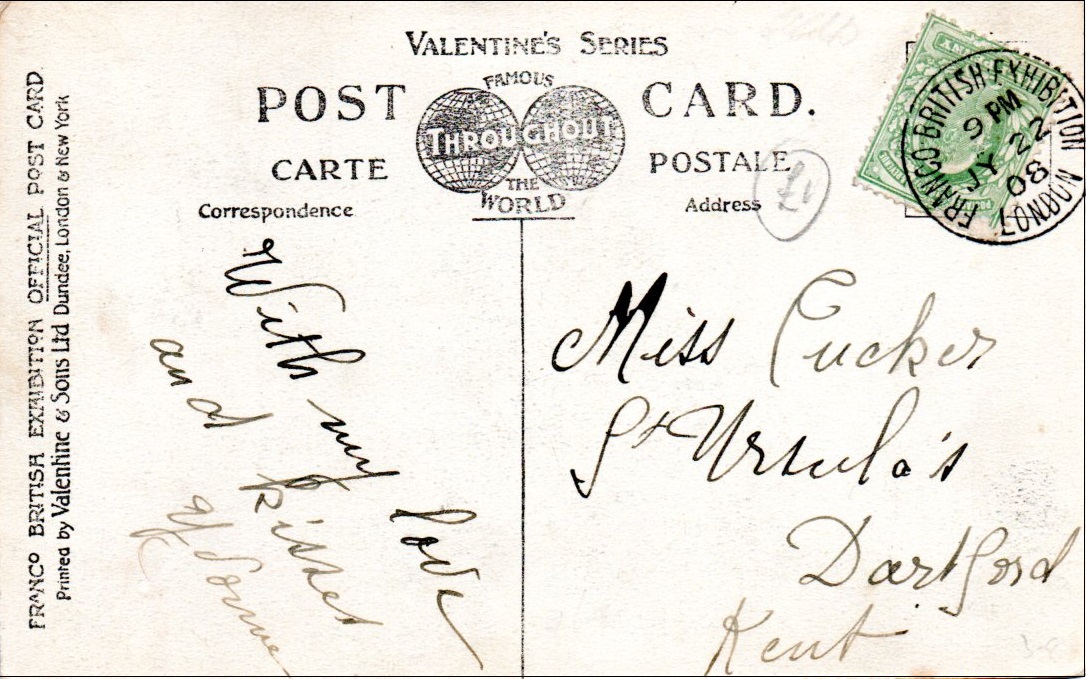 VALENTINE'S SERIES
POST CARD.
FAMOUS
THROUGHOUT
THE
WORLD
CARTE POSTALE
Correspondence
Address
£1
FRANCO BRITISH EXHIBITION
LONDON
9 PM
JY 22
08
FRANCO BRITISH EXHIBITION OFFICIAL POST CARD.
Printed by Valentine & Sons Ltd Dundee, London & New York
With my love
and kisses
Miss Tucker
St Ursula's
Dartford
Kent